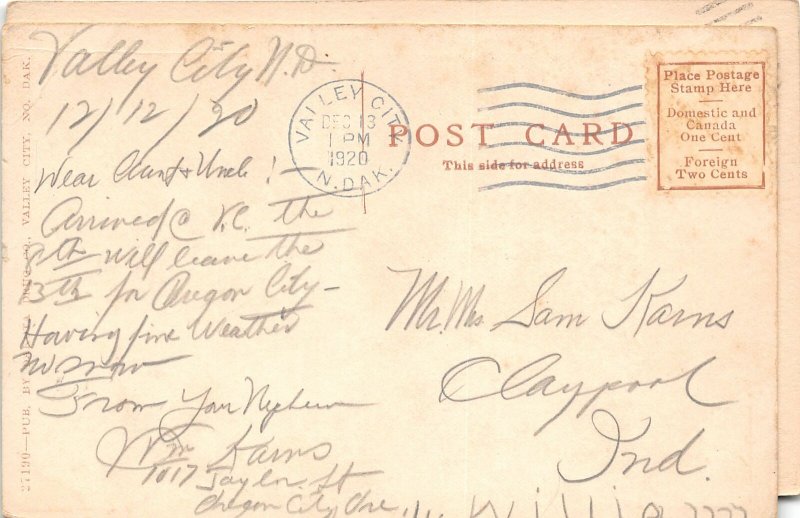 Valley City N.D.
12/12/20
Dear Aunt & Uncle! -
Arrived @ V.C. the
8th will leave the
13th for Oregon City -
Having fine Weather
no snow
From Your Nephew
Wm Karns
1017 Taylor St
Oregon City, Ore
VALLEY CITY
DEC 13
1 PM
1920
N. DAK.
POST CARD
This side for address
Place Postage
Stamp Here
Domestic and
Canada
One Cent
Foreign
Two Cents
Mr. Mrs Sam Karns
Claypool
Ind.
27190—PUB. BY CO. VALLEY CITY, NO. DAK.